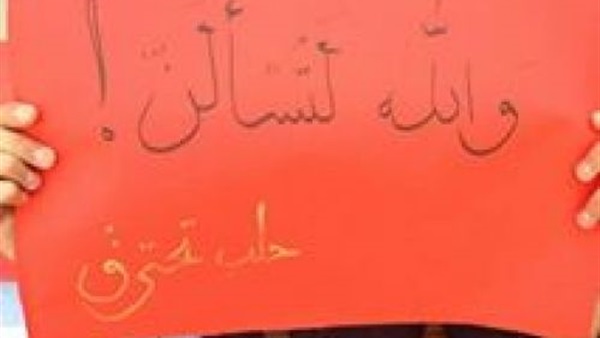 والله لتسألنّ!
حلب تحترق